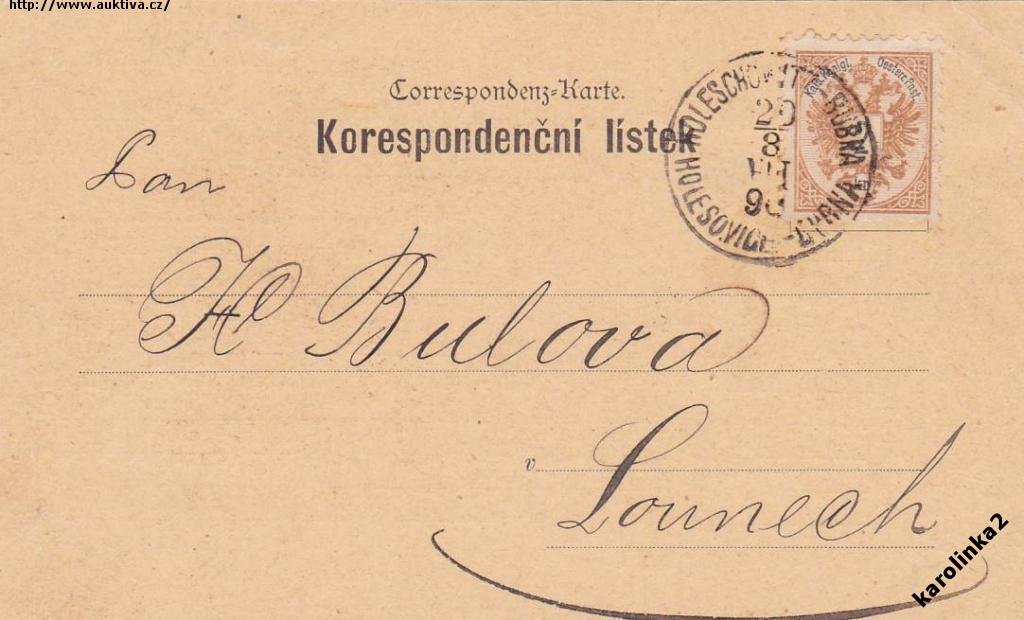 http://www.auktiva.cz/
Correspondenz-Karte.
Korespondenční lístek
Kais. Königl. Oesterr. Post.
HOLESCHOWITZ
HOLEŠOVICE
20
8
VIII
Pan
H Bulova
v Lounech
karolinka2